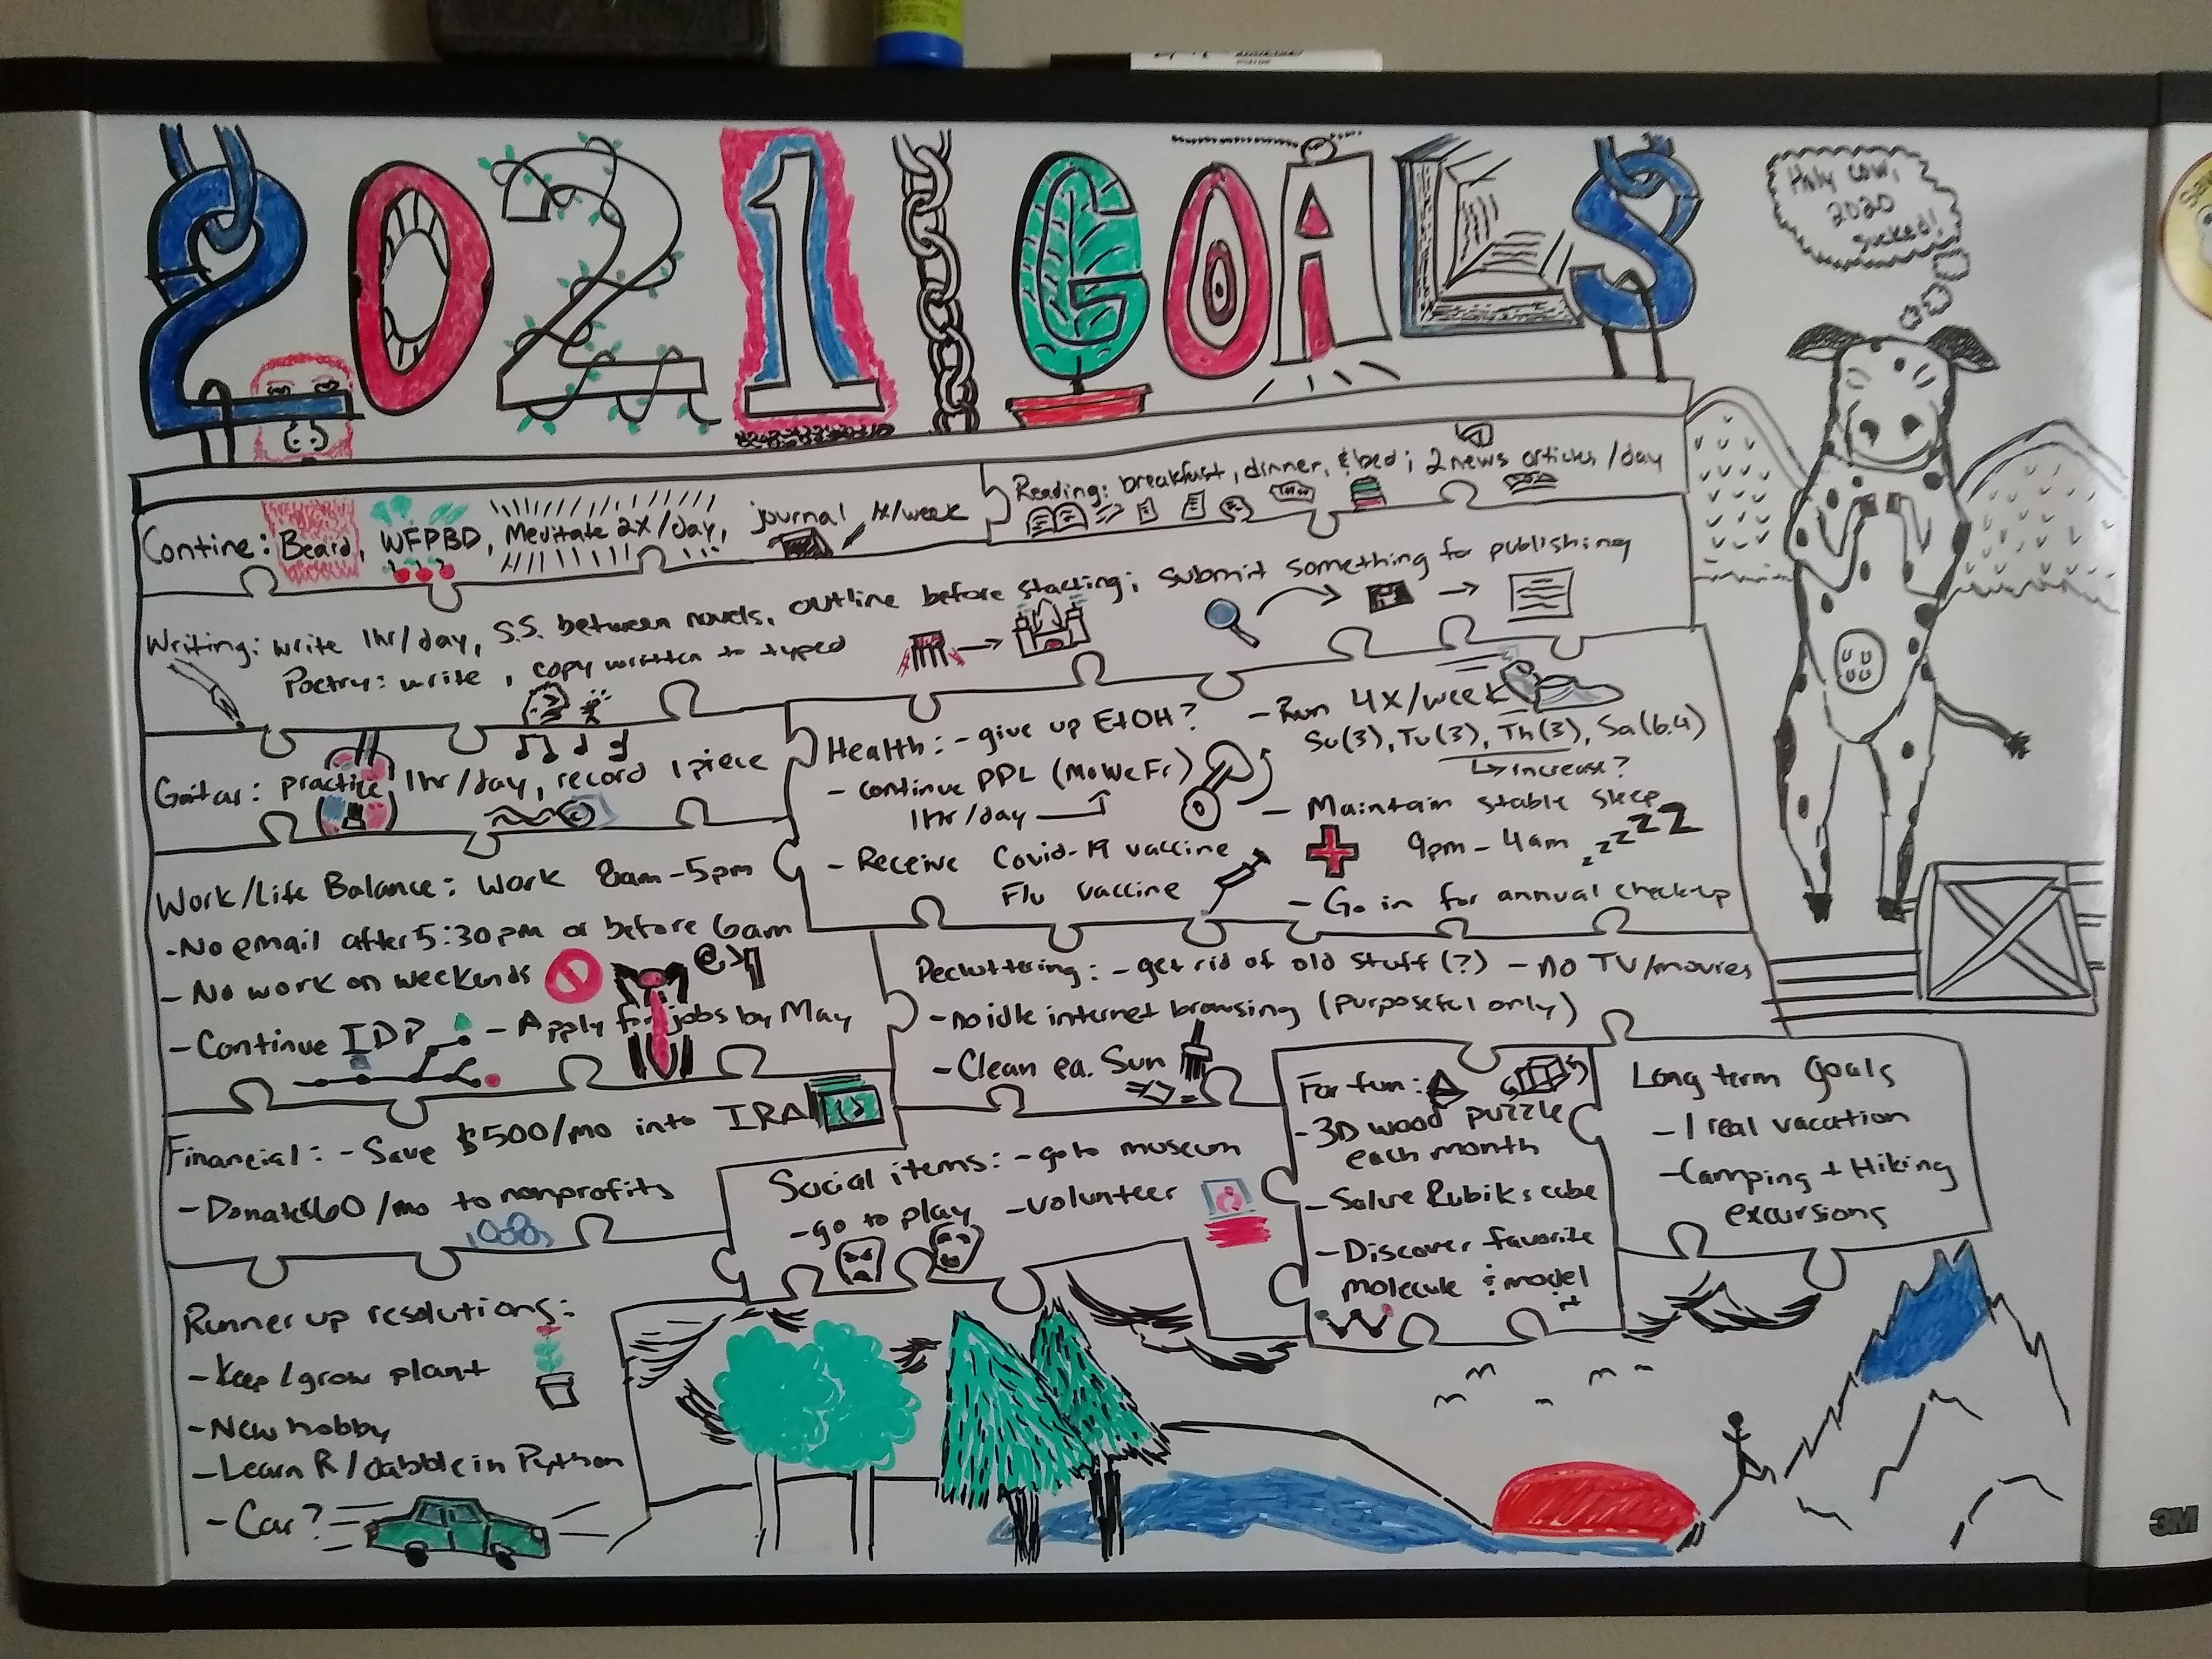 2021 GOALS
Holy cow,
2020
sucked!
Contine: Beard, WFPBD, Meditate 2X/day, journal 1x/week
Reading: breakfast, dinner, & bed; 2 news articles/day
Writing: write 1hr/day, S.S. between novels, outline before starting; submit something for publishing
Poetry: write, copy written to typed
Guitar: practice 1hr/day, record 1 piece
Health: - give up EtOH?
- continue PPL (MoWeFr)
1hr/day
- Receive Covid-19 vaccine
Flu vaccine
- Run 4X/week
Su(3), Tu(3), Th(3), Sa(6.4)
↳ increase?
- Maintain stable sleep
9pm - 4am zzzZZ
- Go in for annual check-up
Work/Life Balance: Work 8am-5pm
- No email after 5:30pm or before 6am
- No work on weekends
@
- Continue IDP - Apply for jobs by May
Decluttering: - get rid of old stuff(?) - No TV/movies
- no idle internet browsing (purposeful only)
- Clean ea. Sun
Financial: - Save $500/mo into IRA
- Donate $60/mo to nonprofits
Social items: - go to museum
- go to play - volunteer
For fun:
- 3D wood puzzle
each month
- Solve Rubik's cube
- Discover favorite
molecule & model
it
Long term goals
- 1 real vacation
- Camping + Hiking
excursions
Runner up resolutions:
- Keep/grow plant
- New hobby
- Learn R/dabble in Python
- Car?
3M